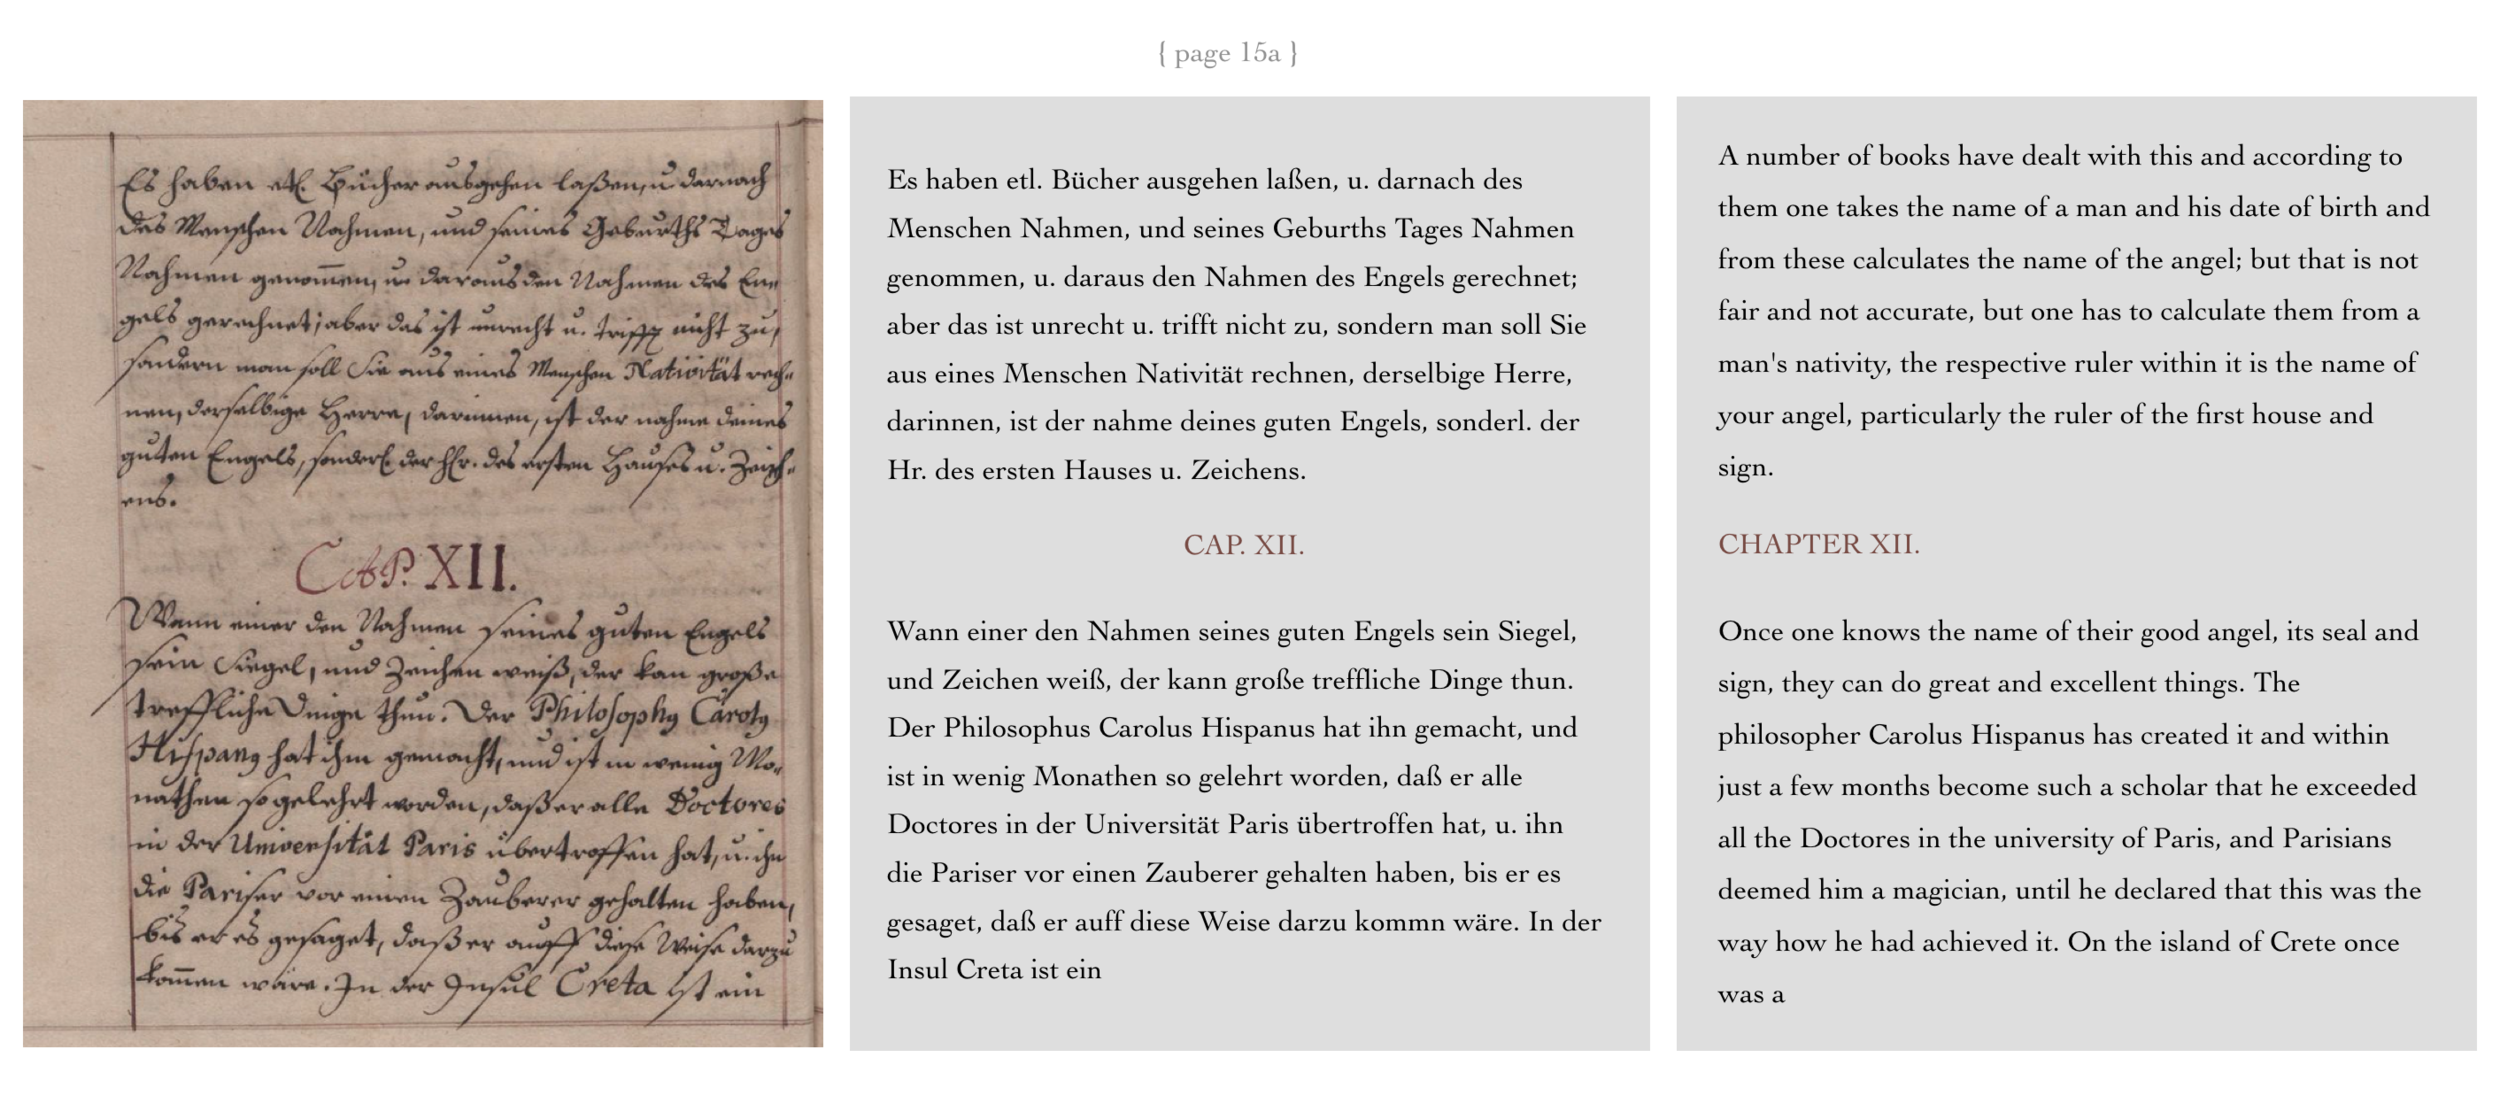 { page 15a }
Es haben etl. Bücher ausgehen laßen, u. darnach
des Menschen Nahmen, und seines Geburths Tages
Nahmen genom̄en, u. daraus den Nahmen des En-
gels gerechnet; aber das ist unrecht u. trifft nicht zu,
sondern man soll Sie aus eines Menschen Nativität rech-
nen, derselbige Herre, darinnen, ist der nahme deines
guten Engels, sonderl. der Hr. des ersten Hauses u. Zeich-
ens.
CAP. XII.
Wann einer den Nahmen seines guten Engels
sein Siegel, und Zeichen weiß, der kan große
treffliche Dinge thun. Der Philosophg Carolg
Hispang hat ihn gemacht, und ist in wenig Mo-
nathen so gelehrt worden, daß er alle Doctores
in der Universität Paris übertroffen hat, u. ihn
die Pariser vor einen Zauberer gehalten haben,
bis er es gesaget, daß er auff diese Weise darzu
kom̄en wäre. In der Insul Creta ist ein
Es haben etl. Bücher ausgehen laßen, u. darnach des
Menschen Nahmen, und seines Geburths Tages Nahmen
genommen, u. daraus den Nahmen des Engels gerechnet;
aber das ist unrecht u. trifft nicht zu, sondern man soll Sie
aus eines Menschen Nativität rechnen, derselbige Herre,
darinnen, ist der nahme deines guten Engels, sonderl. der
Hr. des ersten Hauses u. Zeichens.
CAP. XII.
Wann einer den Nahmen seines guten Engels sein Siegel,
und Zeichen weiß, der kann große treffliche Dinge thun.
Der Philosophus Carolus Hispanus hat ihn gemacht, und
ist in wenig Monathen so gelehrt worden, daß er alle
Doctores in der Universität Paris übertroffen hat, u. ihn
die Pariser vor einen Zauberer gehalten haben, bis er es
gesaget, daß er auff diese Weise darzu kommn wäre. In der
Insul Creta ist ein
A number of books have dealt with this and according to
them one takes the name of a man and his date of birth and
from these calculates the name of the angel; but that is not
fair and not accurate, but one has to calculate them from a
man's nativity, the respective ruler within it is the name of
your angel, particularly the ruler of the first house and
sign.
CHAPTER XII.
Once one knows the name of their good angel, its seal and
sign, they can do great and excellent things. The
philosopher Carolus Hispanus has created it and within
just a few months become such a scholar that he exceeded
all the Doctores in the university of Paris, and Parisians
deemed him a magician, until he declared that this was the
way how he had achieved it. On the island of Crete once
was a